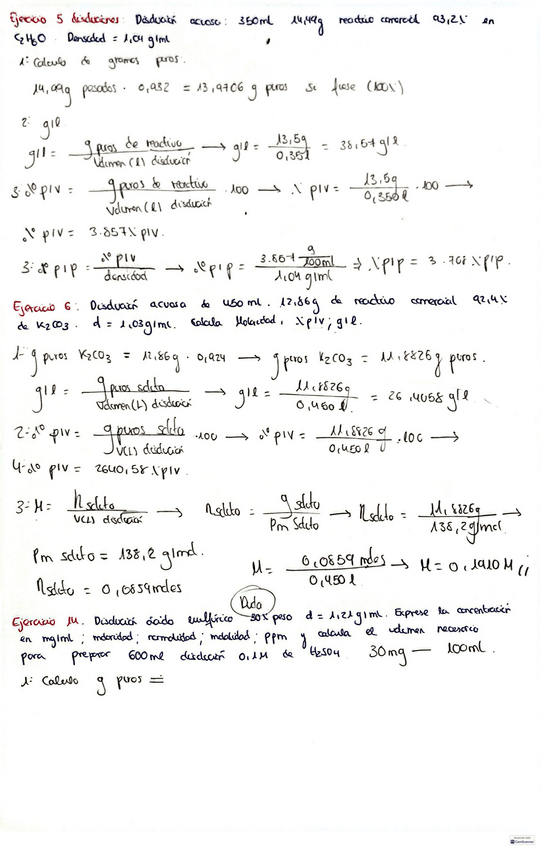 Ejercicio 5 disoluciones Disolución acuosa: 350ml 14,99g reactivo comercial 93,2% en
C2H6O. Densidad = 1,04 g/ml
1: Calculo de gramos puros.
14,99g pesados · 0,932 = 13,9706 g puros si fuese (100%)
2: g/l
g/l = g puros de reactivo / Volumen (l) disolución → g/l = 13,5g / 0,35l = 38,57 g/l
3: % p/v = g puros de reactivo / Volumen (l) disolución · 100 → % p/v = 13,5g / 0,350l · 100 →
% p/v = 3.857% p/v.
3: % p/p = % p/v / densidad → % p/p = 3.857 g/100ml / 1,04 g/ml ⇒ % p/p = 3.708 % p/p.
Ejercicio 6: Disolución acuosa de 450 ml. 12,86g de reactivo comercial 92,4%
de K2CO3. d = 1,03g/ml. Calcula Molaridad, % p/v, g/l.
1- g puros K2CO3 = 12,86g · 0,924 → g puros K2CO3 = 11,8826g puros.
g/l = g puros soluto / Volumen (L) disolución → g/l = 11,8826g / 0,450 l = 26,4058 g/l
2- % p/v = g puros soluto / V(L) disolución · 100 → % p/v = 11,8826 g / 0,450 l · 100 →
4- % p/v = 2640,58 % p/v.
3- M = n soluto / V(L) disolución → n soluto = g soluto / Pm soluto → n soluto = 11,8826g / 138,2g/mol →
Pm soluto = 138,2 g/mol.
n soluto = 0,0859 moles
M = 0,0859 moles / 0,450 l → M = 0,1910 M //
Duda
Ejercicio 14. Disolución ácido sulfúrico 30% peso d = 1,21 g/ml. Exprese la concentración
en mg/ml; molaridad; normalidad; molalidad; ppm y calcula el volumen necesario
para preparar 600ml disolución 0,1M de H2SO4 30mg — 100ml.
1: Calculo g puros =